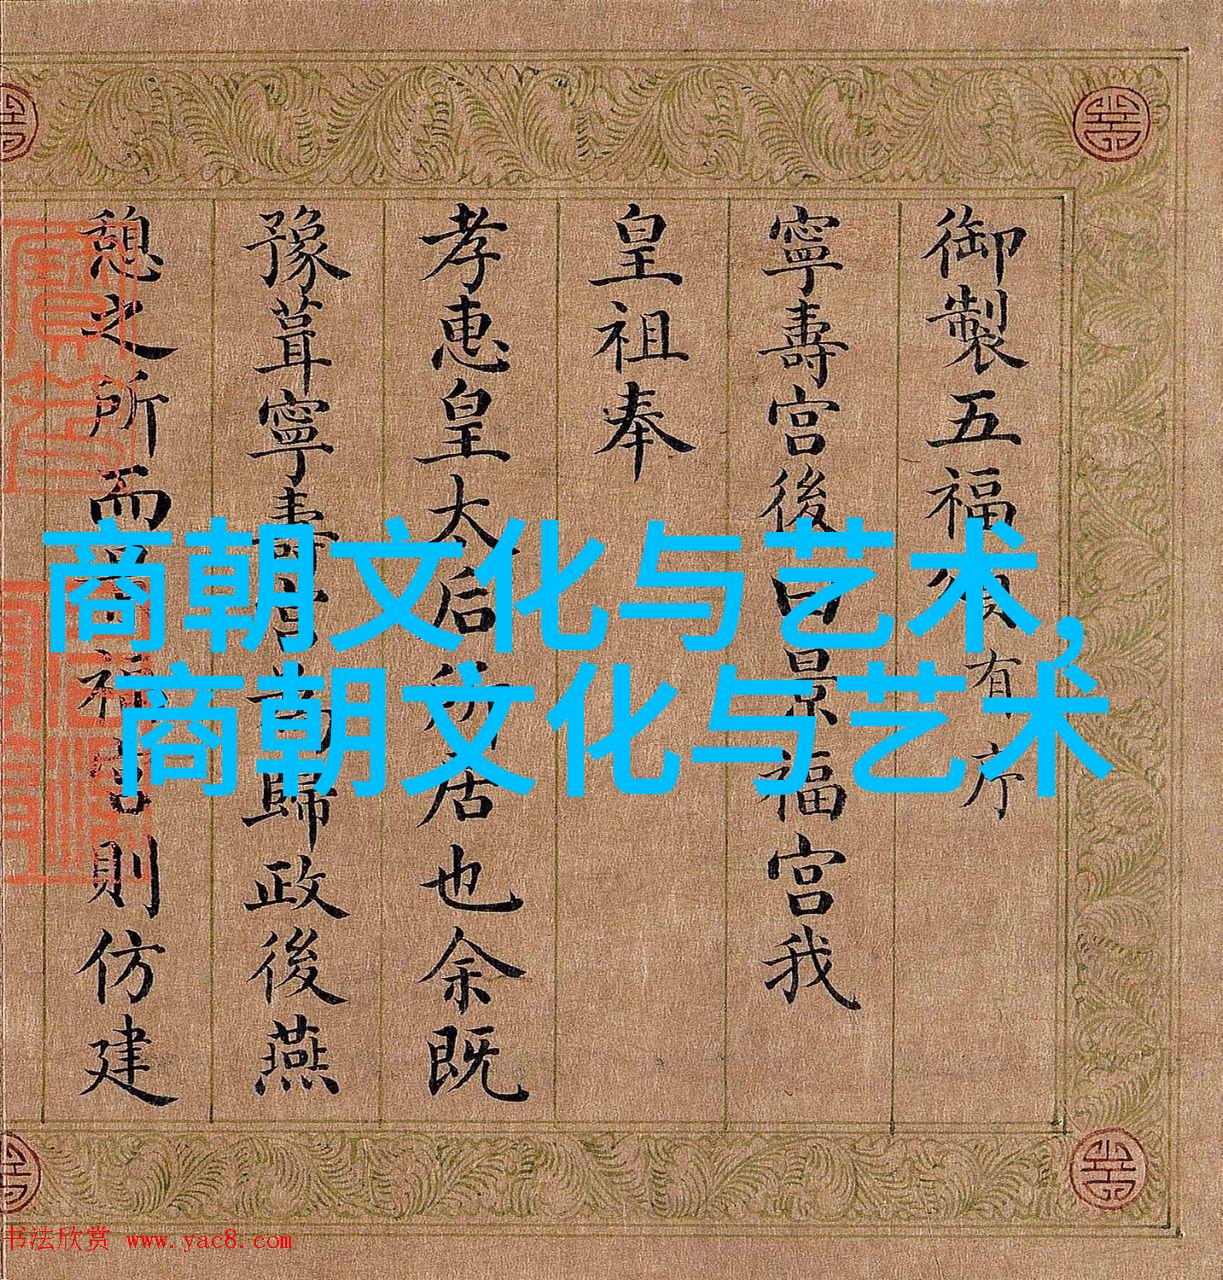 御製五福
有序
寧壽宮後曰景福宮我
皇祖奉
孝惠皇太后所居也余既
豫葺寧壽宮為歸政後燕
憩之所而
福宮則仿建
商朝文化与艺术,
商朝文化与艺术
书法欣赏 www.yac8.com